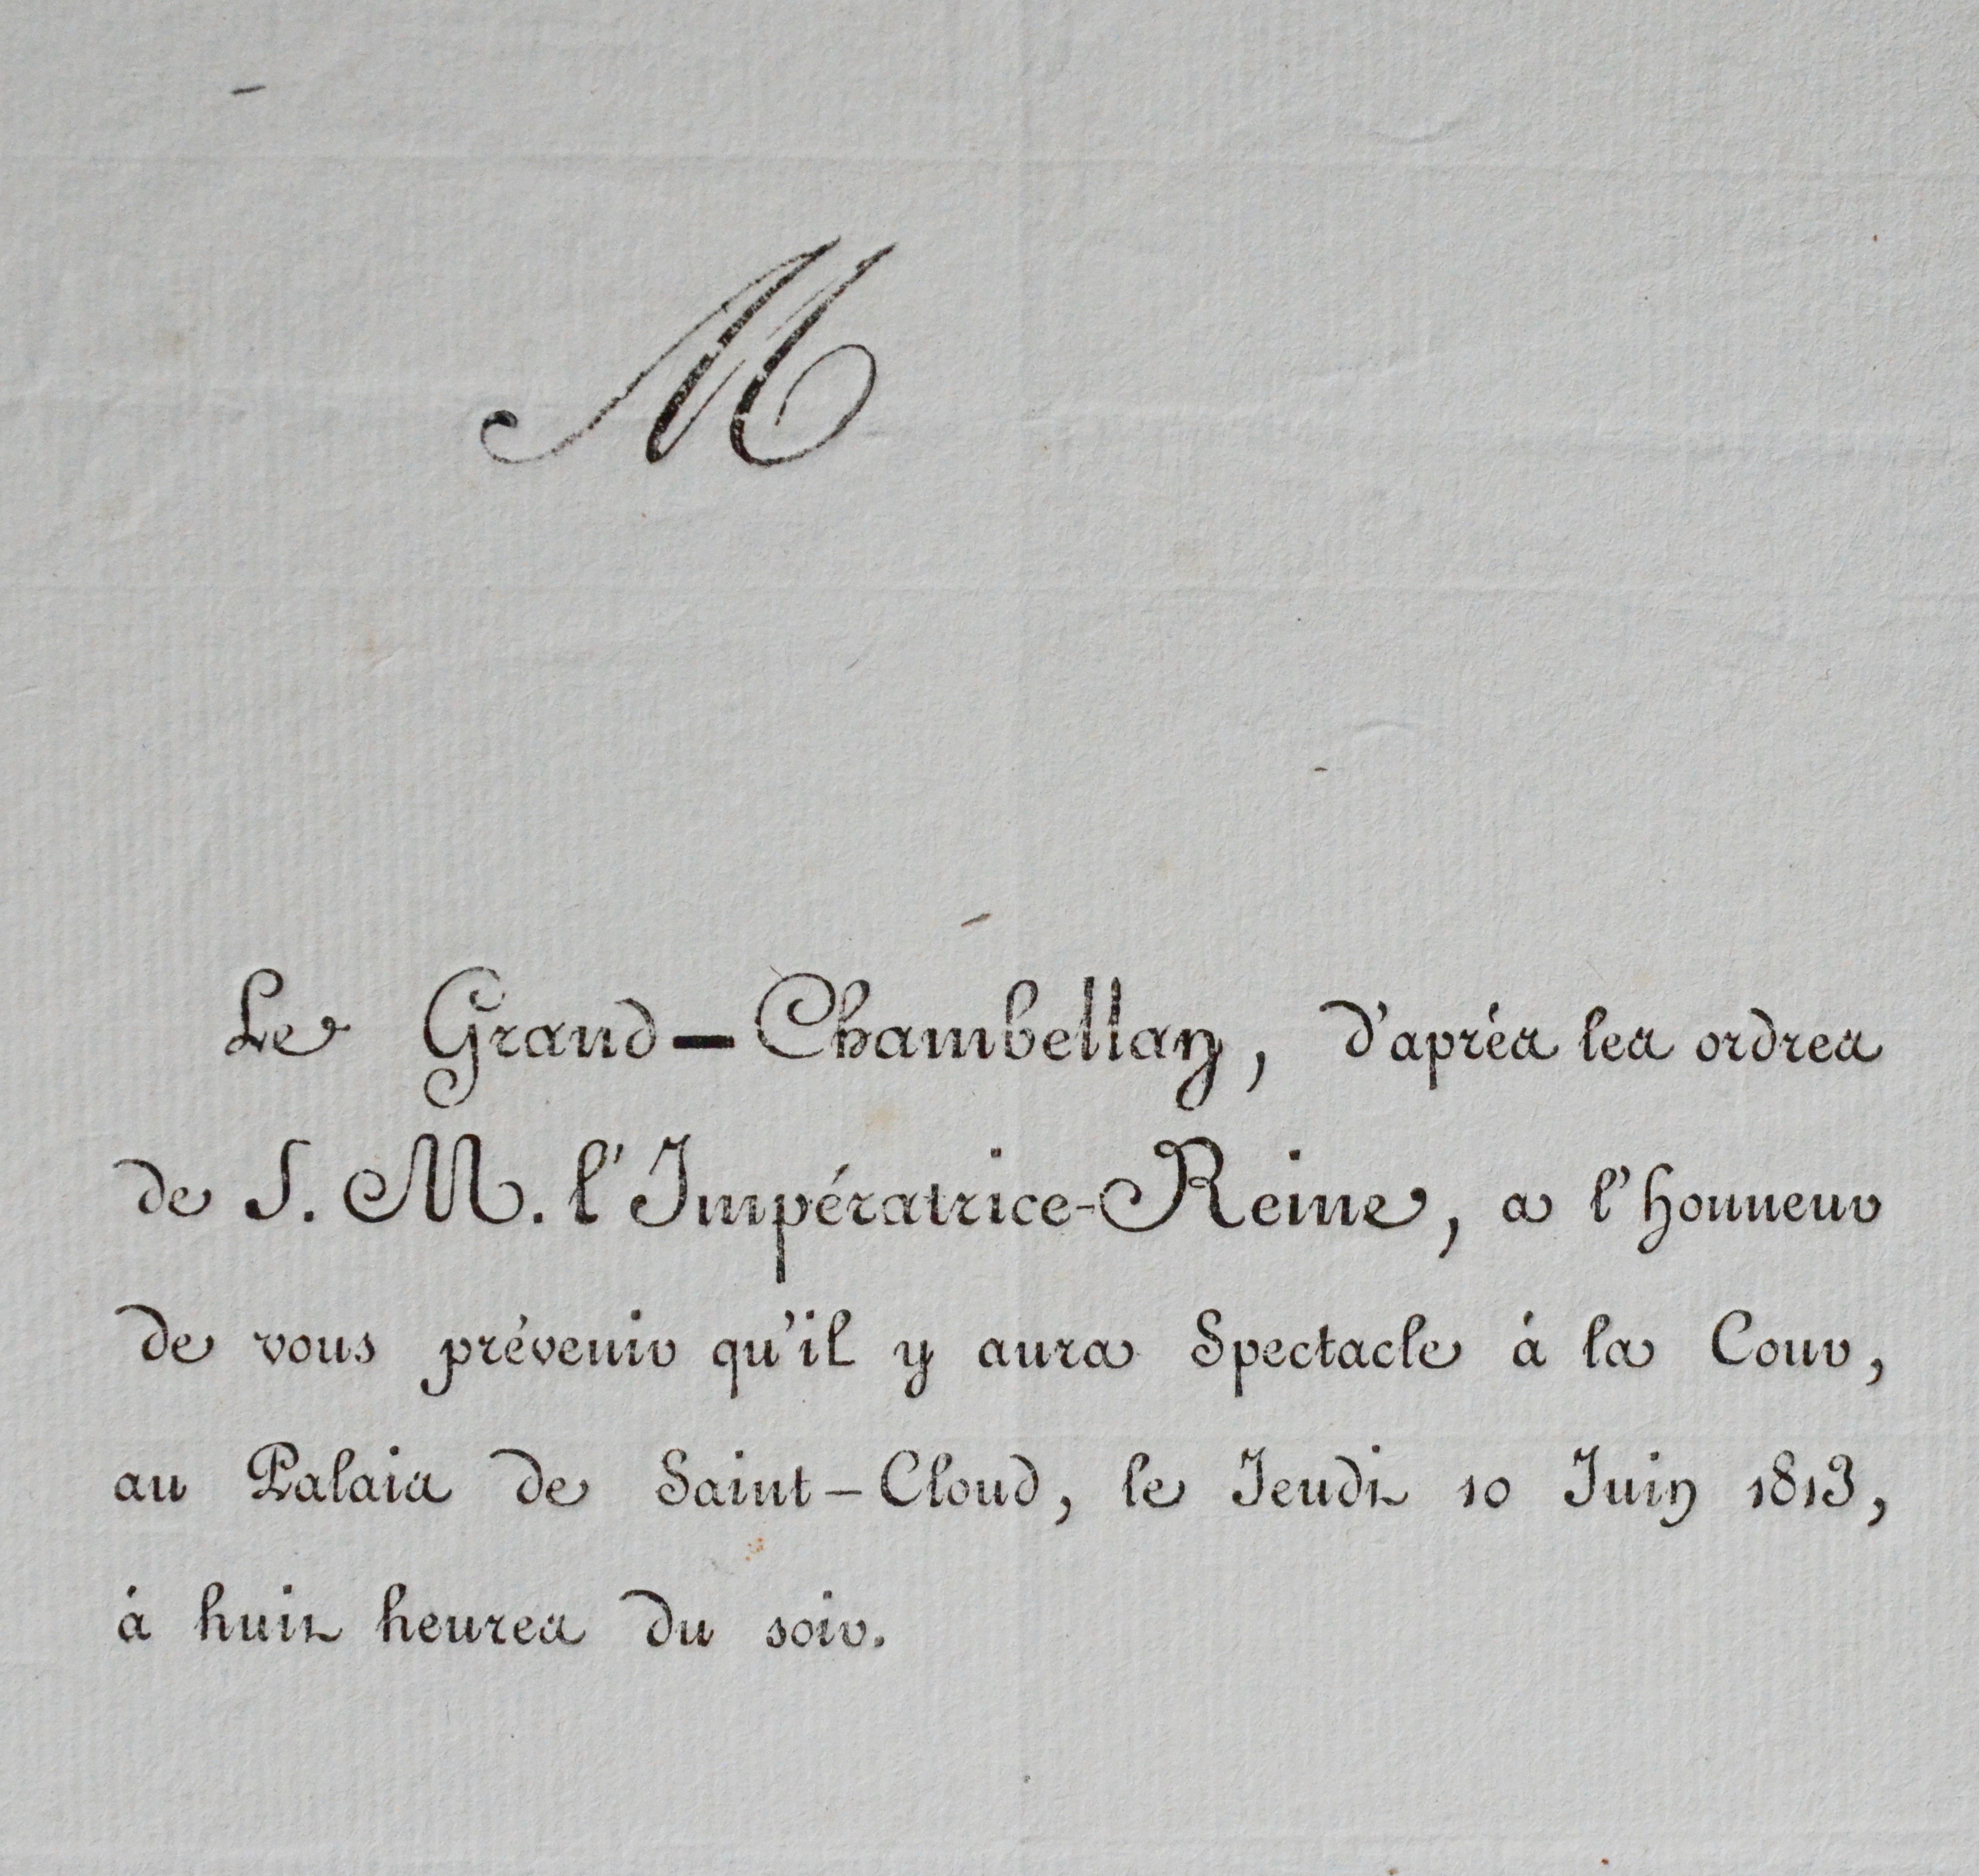 M
Le Grand-Chambellan, d'après les ordres
de S. M. l'Impératrice-Reine, a l'honneur
de vous prévenir qu'il y aura Spectacle à la Cour,
au Palais de Saint-Cloud, le Jeudi 10 Juin 1813,
à huit heures du soir.